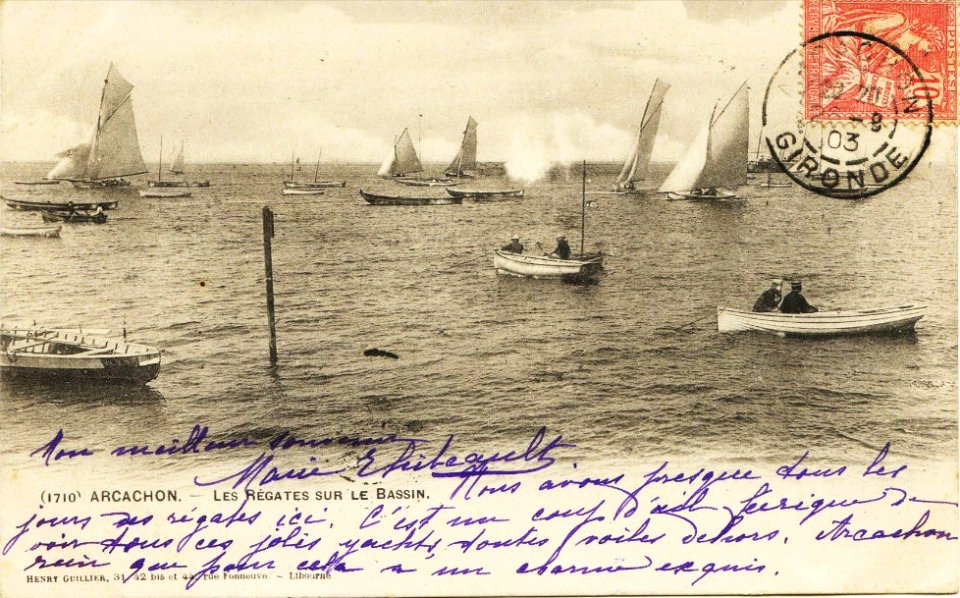 POSTES
10
ARCACHON
03
GIRONDE
Mon meilleur souvenir
Marie Thibeault
(1710) ARCACHON. — LES RÉGATES SUR LE BASSIN.
Nous avons presque tous les
jours des régates ici. C'est un coup d'œil féerique de
voir tous ces jolis yachts toutes voiles dehors. Arcachon
rien que pour cela a un charme exquis.
HENRY GUILLIER, 31, 42 bis et 44, rue Fonneuve. - LIBOURNE